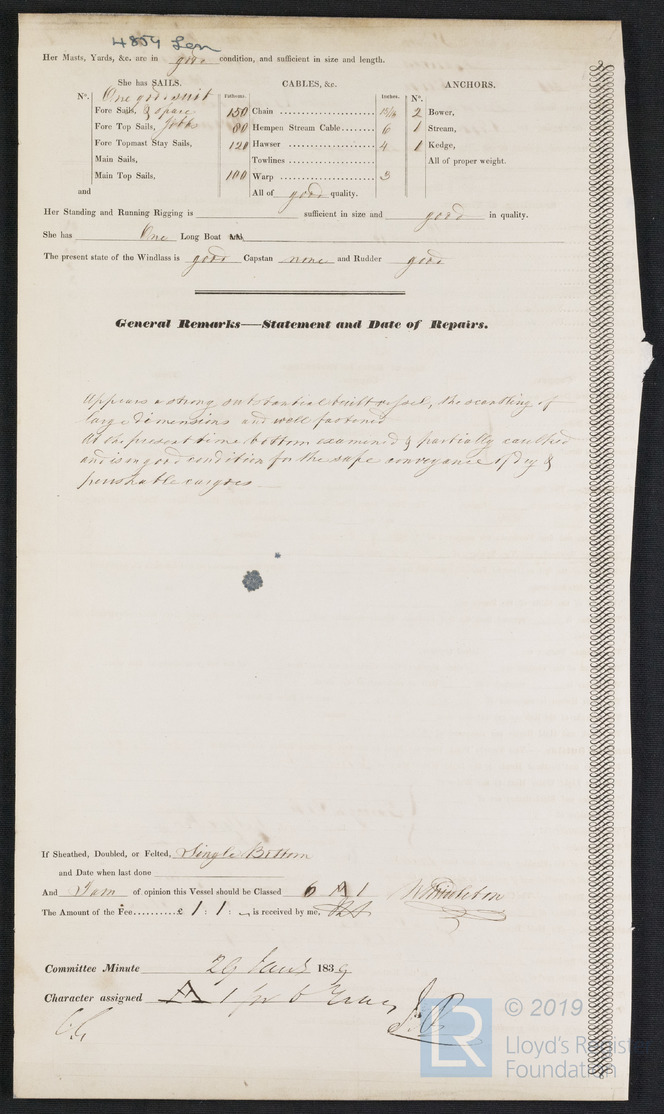 4859 Len
Her Masts, Yards, &c. are in good condition, and sufficient in size and length.
She has SAILS.
CABLES, &c.
ANCHORS.
N°.
Fathoms.
Inches.
N°.
One good suit
Fore Sails, & spare
150 Chain
2 Bower,
Fore Top Sails, Jibbs
80 Hempen Stream Cable 6
1 Stream,
Fore Topmast Stay Sails,
120 Hawser 4
1 Kedge,
Main Sails,
Towlines
All of proper weight.
Main Top Sails,
100 Warp 3
and
All of good quality.
Her Standing and Running Rigging is sufficient in size and good in quality.
She has One Long Boat and
The present state of the Windlass is good Capstan none and Rudder good
General Remarks—Statement and Date of Repairs.
Appears a strong substantial built vessel, the scantling of
large dimensions and well fastened
At the present time bottom examined & partially caulked
and is in good condition for the safe conveyance of dry &
perishable cargoes
If Sheathed, Doubled, or Felted, Single Bottom
and Date when last done
And I am of opinion this Vessel should be Classed 6 A 1
The Amount of the Fee..........£ 1 : 1 : is received by me,
Committee Minute 29 Jany 1839
Character assigned A 1 for 6 Years
© 2019
LR
Lloyd's Register
Foundation